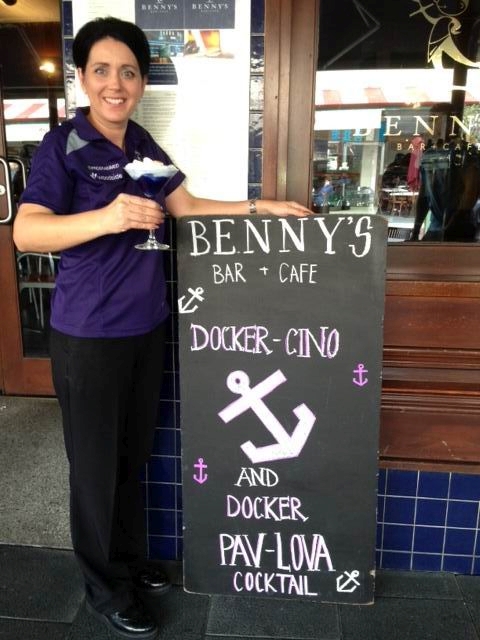 BENNY'S
BENNY'S
BENN
BAR + CAFE
BENNY'S
BAR + CAFE
DOCKER-CINO
AND
DOCKER
PAV-LOVA
COCKTAIL